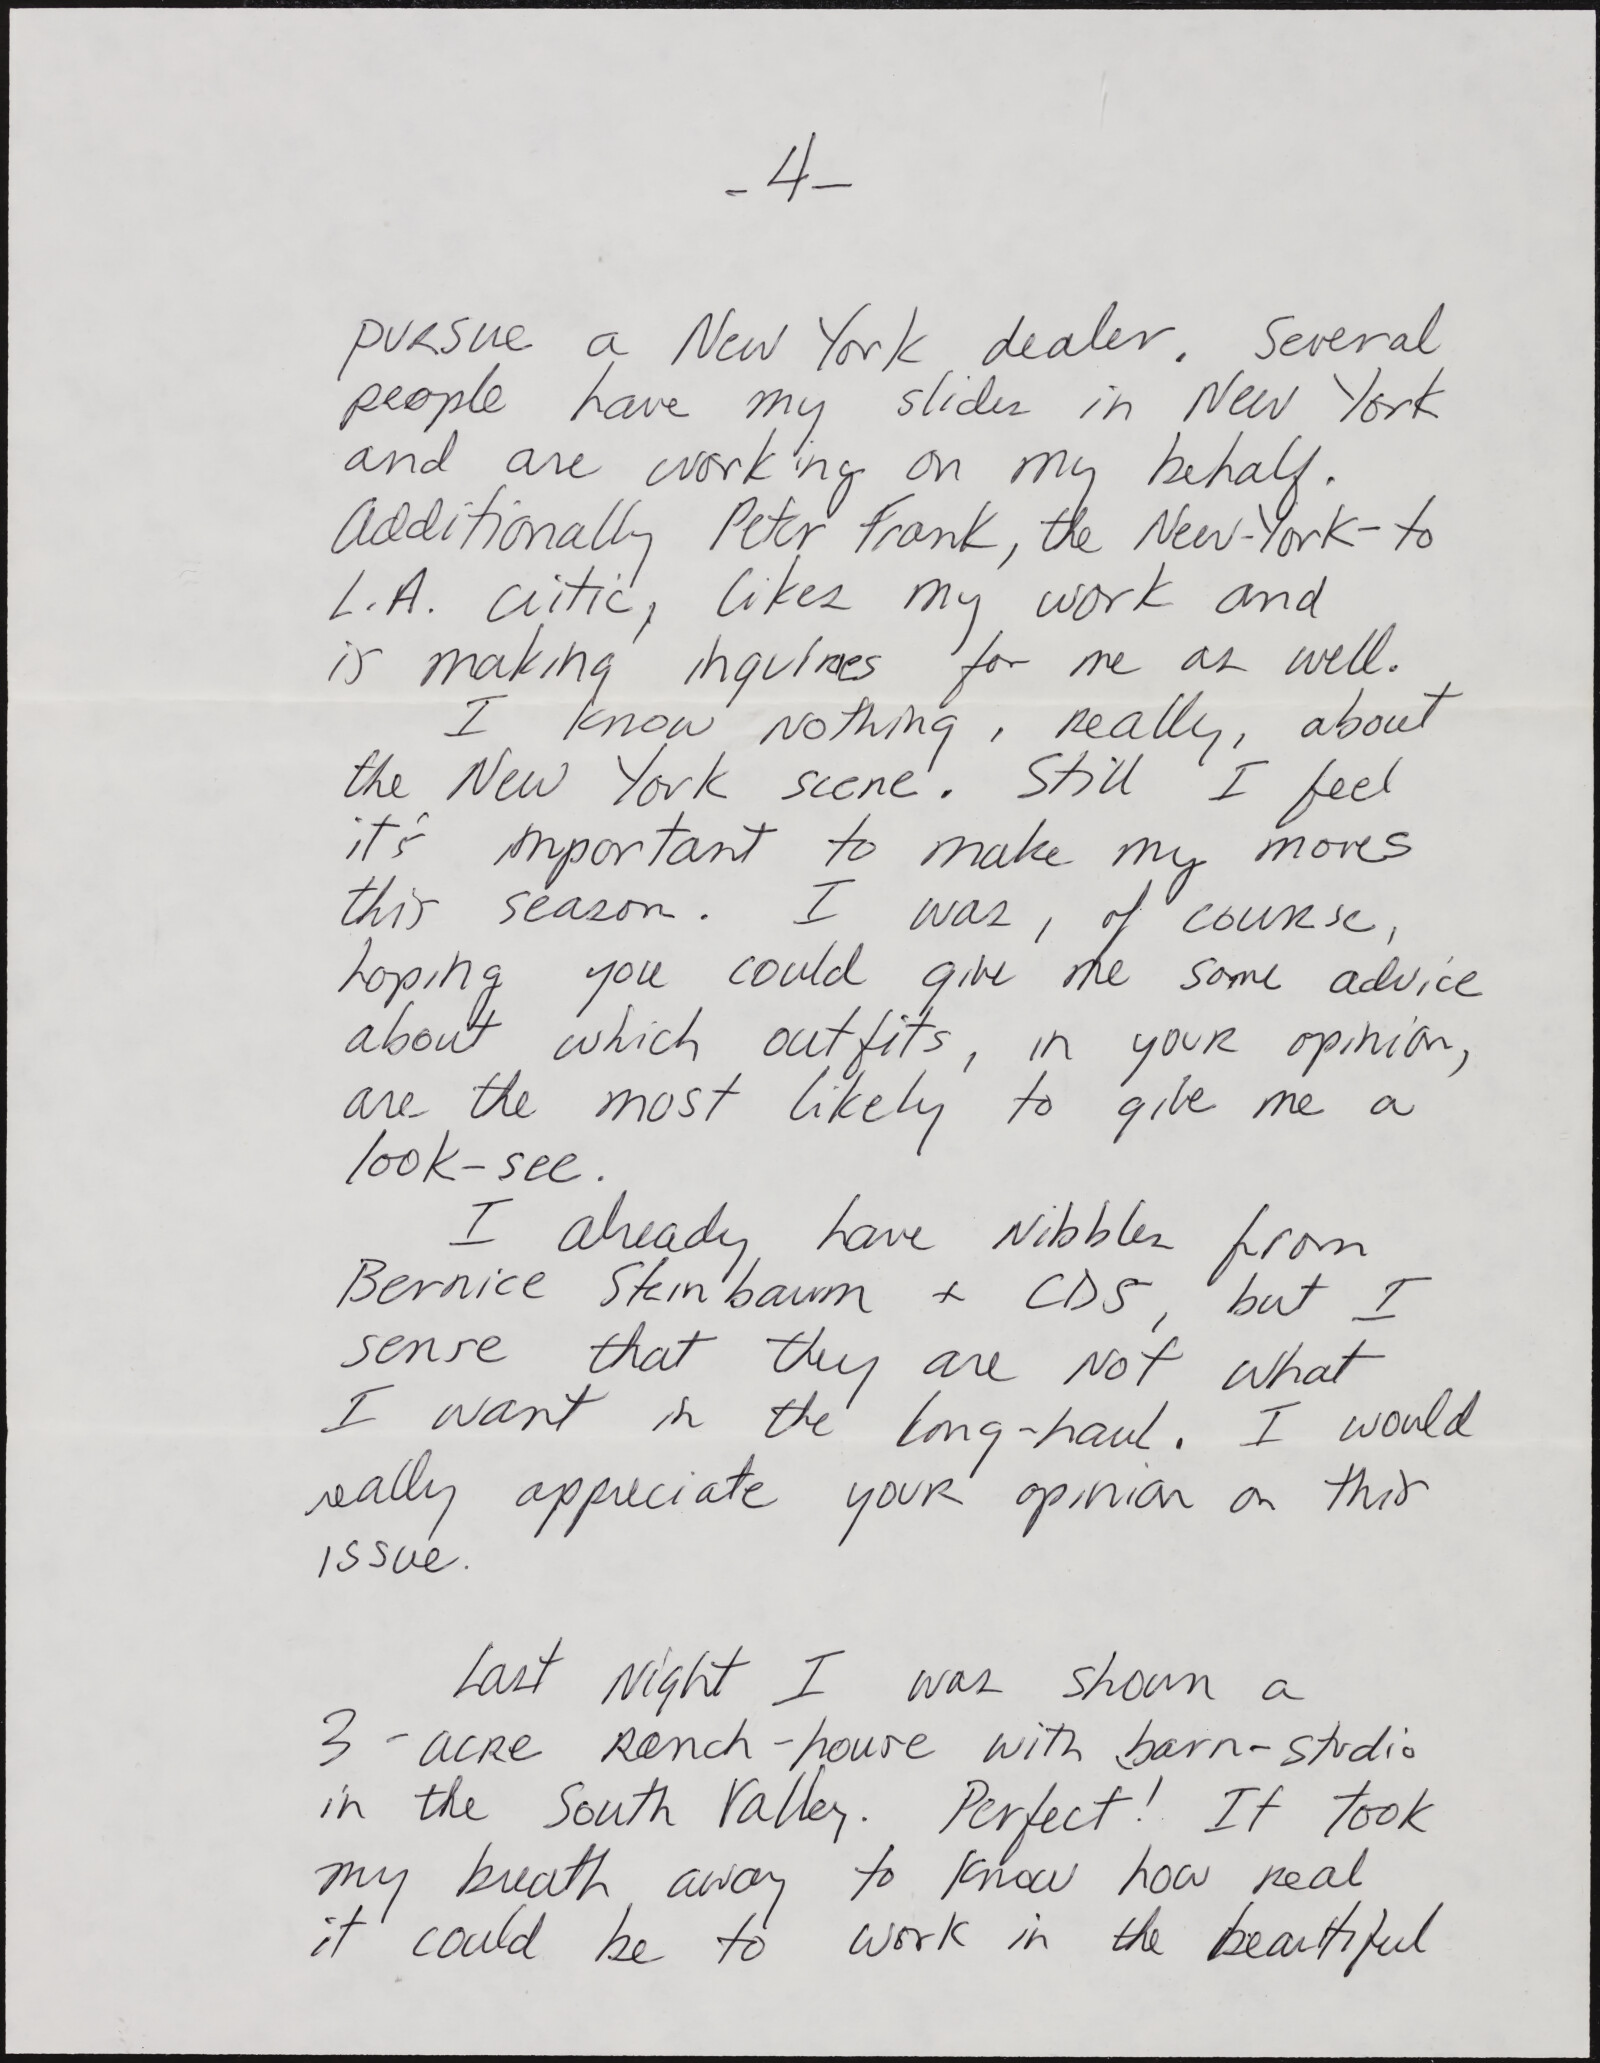 - 4 -
pursue a New York dealer. Several
people have my slides in New York
and are working on my behalf.
Additionally Peter Frank, the New-York-to
L.A. critic, likes my work and
is making inquiries for me as well.
I know nothing, really, about
the New York scene. Still I feel
it's important to make my moves
this season. I was, of course,
hoping you could give me some advice
about which outfits, in your opinion,
are the most likely to give me a
look-see.
I already have nibbles from
Bernice Steinbaum + CDS, but I
sense that they are not what
I want in the long-haul. I would
really appreciate your opinion on this
issue.
Last night I was shown a
3-acre ranch-house with barn-studio
in the South Valley. Perfect! It took
my breath away to know how real
it could be to work in the beautiful